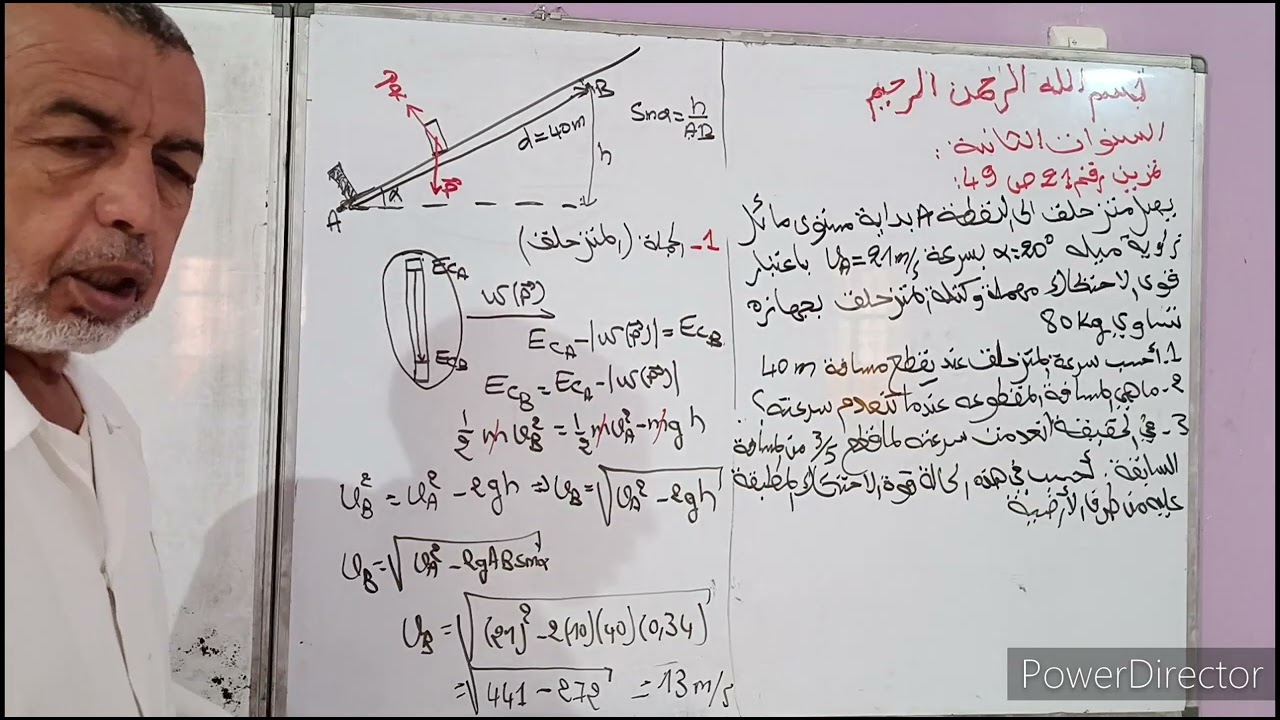 بسم الله الرحمن الرحيم
السنوات الثانية :
تمرين رقم 21 ص 49:
يصل متزحلق الى النقطة A بداية مستوى مائل
زاوية ميله α=20° بسرعة V_A=21m/s باعتبار
قوى الاحتكاك مهملة وكتلة المتزحلق بجهازه
تساوي 80Kg
1. أحسب سرعة المتزحلق عند يقطع مسافة 40m
2- ماهي المسافة المقطوعة عندما تنعدم سرعته؟
3- في الحقيقة انعدمت سرعته لما قطع 3/5 من المسافة
السابقة. أحسب في هذه الحالة قوة الاحتكاك المطبقة
عليه من طرف الأرضية
R
B
d=40m
h
α
P
A
Sinα = h/AB
1- الجملة (المتزحلق)
E_CA
E_CB
W(P)
E_CA - |W(P)| = E_CB
E_CB = E_CA - |W(P)|
1/2 m V_B² = 1/2 m V_A² - m g h
V_B² = V_A² - 2gh ⇒ V_B = √(V_A² - 2gh)
V_B = √(V_A² - 2gABsinα)
V_B = √((21)² - 2(10)(40)(0,34))
= √(441 - 272) = 13 m/s
PowerDirector